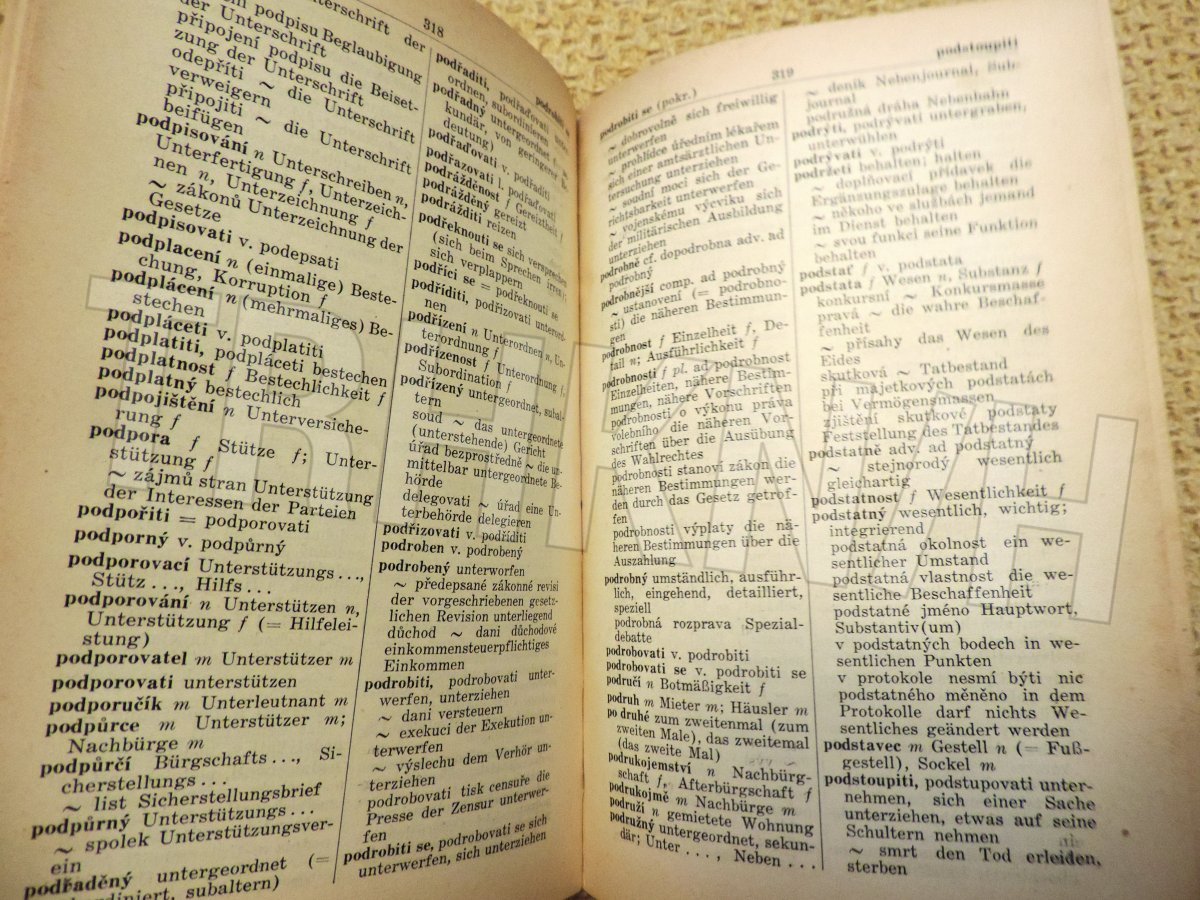 318
Unterschrift der
podpisu Beglaubigung
der Unterschrift
připojení podpisu die Beiset-
zung der Unterschrift
odepříti ~ die Unterschrift
verweigern
připojiti ~ die Unterschrift
beifügen
podpisování n Unterschreiben n,
Unterfertigung f, Unterzeich-
nen n, Unterzeichnung f
~ zákonů Unterzeichnung der
Gesetze
podpisovati v. podepsati
podplacení n (einmalige) Beste-
chung, Korruption f
podplácení n (mehrmaliges) Be-
stechen
podpláceti v. podplatiti
podplatiti, podpláceti bestechen
podplatnost f Bestechlichkeit f
podplatný bestechlich
podpojištění n Unterversiche-
rung f
podpora f Stütze f; Unter-
stützung f
~ zájmů stran Unterstützung
der Interessen der Parteien
podpořiti = podporovati
podporný v. podpůrný
podporovací Unterstützungs...,
Stütz..., Hilfs...
podporování n Unterstützen n,
Unterstützung f (= Hilfelei-
stung)
podporovatel m Unterstützer m
podporovati unterstützen
podporučík m Unterleutnant m
podpůrce m Unterstützer m;
Nachbürge m
podpůrčí Bürgschafts..., Si-
cherstellungs...
~ list Sicherstellungsbrief
podpůrný Unterstützungs...
~ spolek Unterstützungsver-
ein
podřaděný untergeordnet (=
subaltern)
podřaditi, podřaďovati
ordnen, subordinieren
podřadný untergeordnet
kundär, von geringerer Be-
deutung)
podřaďovati v. podřaditi
podřazovati l. podřaďovati
podrážděnost f Gereiztheit f
podrážděný gereizt
podrážditi reizen
podřeknouti se sich versprechen
(sich beim Sprechen irren);
sich verplappern
podříci se = podřeknouti se
podříditi, podřizovati unterord-
nen
podřízení n Unterordnen n, Un-
terordnung f
podřízenost f Unterordnung f,
Subordination f
podřízený untergeordnet, subal-
tern
soud ~ das untergeordnete
(unterstehende) Gericht
úřad bezprostředně ~ die un-
mittelbar untergeordnete Be-
hörde
delegovati ~ úřad eine Un-
terbehörde delegieren
podřizovati v. podříditi
podroben v. podrobený
podrobený unterworfen
~ předepsané zákonné revisi
der vorgeschriebenen gesetz-
lichen Revision unterliegend
důchod ~ dani důchodové
einkommensteuerpflichtiges
Einkommen
podrobiti, podrobovati unter-
werfen, unterziehen
~ dani versteuern
~ exekuci der Exekution un-
terwerfen
~ výslechu dem Verhör un-
terziehen
podrobovati tisk censuře die
Presse der Zensur unterwer-
fen
podrobiti se, podrobovati se sich
unterwerfen, sich unterziehen
319
podstoupiti
podrobiti se (pokr.)
~ dobrovolně sich freiwillig
unterwerfen
~ prohlídce úředním lékařem
sich einer amtsärztlichen Un-
tersuchung unterziehen
~ soudní moci sich der Ge-
richtsbarkeit unterwerfen
~ vojenskému výcviku sich
der militärischen Ausbildung
unterziehen
podrobně cf. dopodrobna adv. ad
podrobný
podrobnější comp. ad podrobný
~ ustanovení (= podrobno-
sti) die näheren Bestimmun-
gen
podrobnost f Einzelheit f, De-
tail n; Ausführlichkeit f
podrobnosti f pl. ad podrobnost
Einzelheiten, nähere Bestim-
mungen, nähere Vorschriften
podrobnosti o výkonu práva
volebního die näheren Vor-
schriften über die Ausübung
des Wahlrechtes
podrobnosti stanoví zákon die
näheren Bestimmungen wer-
den durch das Gesetz getrof-
fen
podrobnosti výplaty die nä-
heren Bestimmungen über die
Auszahlung
podrobný umständlich, ausführ-
lich, eingehend, detailliert,
speziell
podrobná rozprava Spezial-
debatte
podrobovati v. podrobiti
podrobovati se v. podrobiti se
područí n Botmäßigkeit f
podruh m Mieter m; Häusler m
po druhé zum zweitenmal (zum
zweiten Male), das zweitemal
(das zweite Mal)
podrukojemství n Nachbürg-
schaft f, Afterbürgschaft f
podrukojmě m Nachbürge m
podruží n gemietete Wohnung
podružný untergeordnet, sekun-
där; Unter..., Neben...
~ deník Nebenjournal, Sub-
journal
podružná dráha Nebenbahn
podrýti, podrývati untergraben,
unterwühlen
podrývati v. podrýti
podržeti behalten; halten
~ doplňovací přídavek die
Ergänzungszulage behalten
~ někoho ve službách jemand
im Dienst behalten
~ svou funkci seine Funktion
behalten
podstať f v. podstata
podstata f Wesen n, Substanz f
konkursní ~ Konkursmasse
pravá ~ die wahre Beschaf-
fenheit
~ přísahy das Wesen des
Eides
skutková ~ Tatbestand
při majetkových podstatách
bei Vermögensmassen
zjištění skutkové podstaty
Feststellung des Tatbestandes
podstatně adv. ad podstatný
~ stejnorodý wesentlich
gleichartig
podstatnost f Wesentlichkeit f
podstatný wesentlich, wichtig;
integrierend
podstatná okolnost ein we-
sentlicher Umstand
podstatná vlastnost die we-
sentliche Beschaffenheit
podstatné jméno Hauptwort,
Substantiv(um)
v podstatných bodech in we-
sentlichen Punkten
v protokole nesmí býti nic
podstatného měněno in dem
Protokolle darf nichts We-
sentliches geändert werden
podstavec m Gestell n (= Fuß-
gestell), Sockel m
podstoupiti, podstupovati unter-
nehmen, sich einer Sache
unterziehen, etwas auf seine
Schultern nehmen
~ smrt den Tod erleiden,
sterben